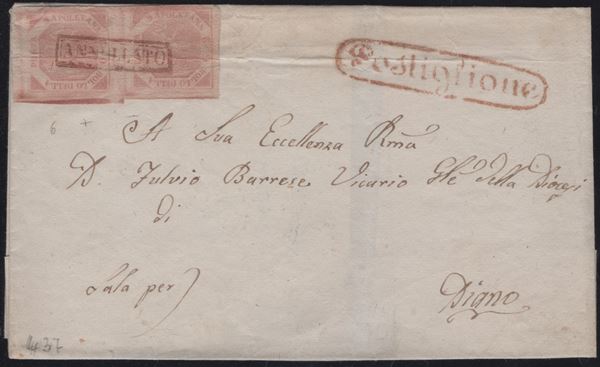 ANNULLATO
Postiglione
6 +
A Sua Eccellenza Rma
D. Fulvio Barrese Vicario Gle della Diocesi
di
Sala per)
Digno
1437